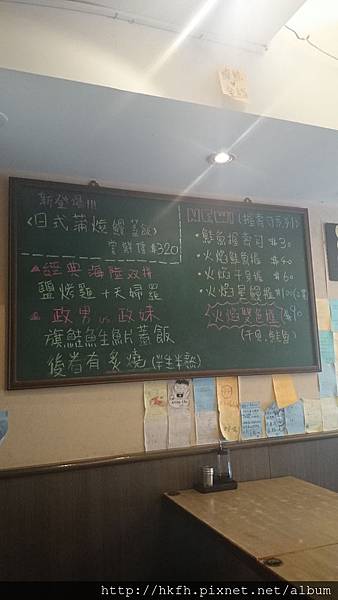 新登場!!!
<日式蒲燒鰻蓋飯>
嘗鮮價$320
▲經典海陸双拼
鹽烤雞+天婦羅
▲政男vs政妹
旗鮭魚生魚片蓋飯
後者有炙燒(半生半熟)
NEW (握壽司系列)
・鮭魚握壽司 $30
・火焰鮭魚握 $60
・火焰干貝握 $60
・火焰星鰻握 $100
・火焰雙色握
(干貝、鮭魚)
http://hkfh.pixnet.net/album